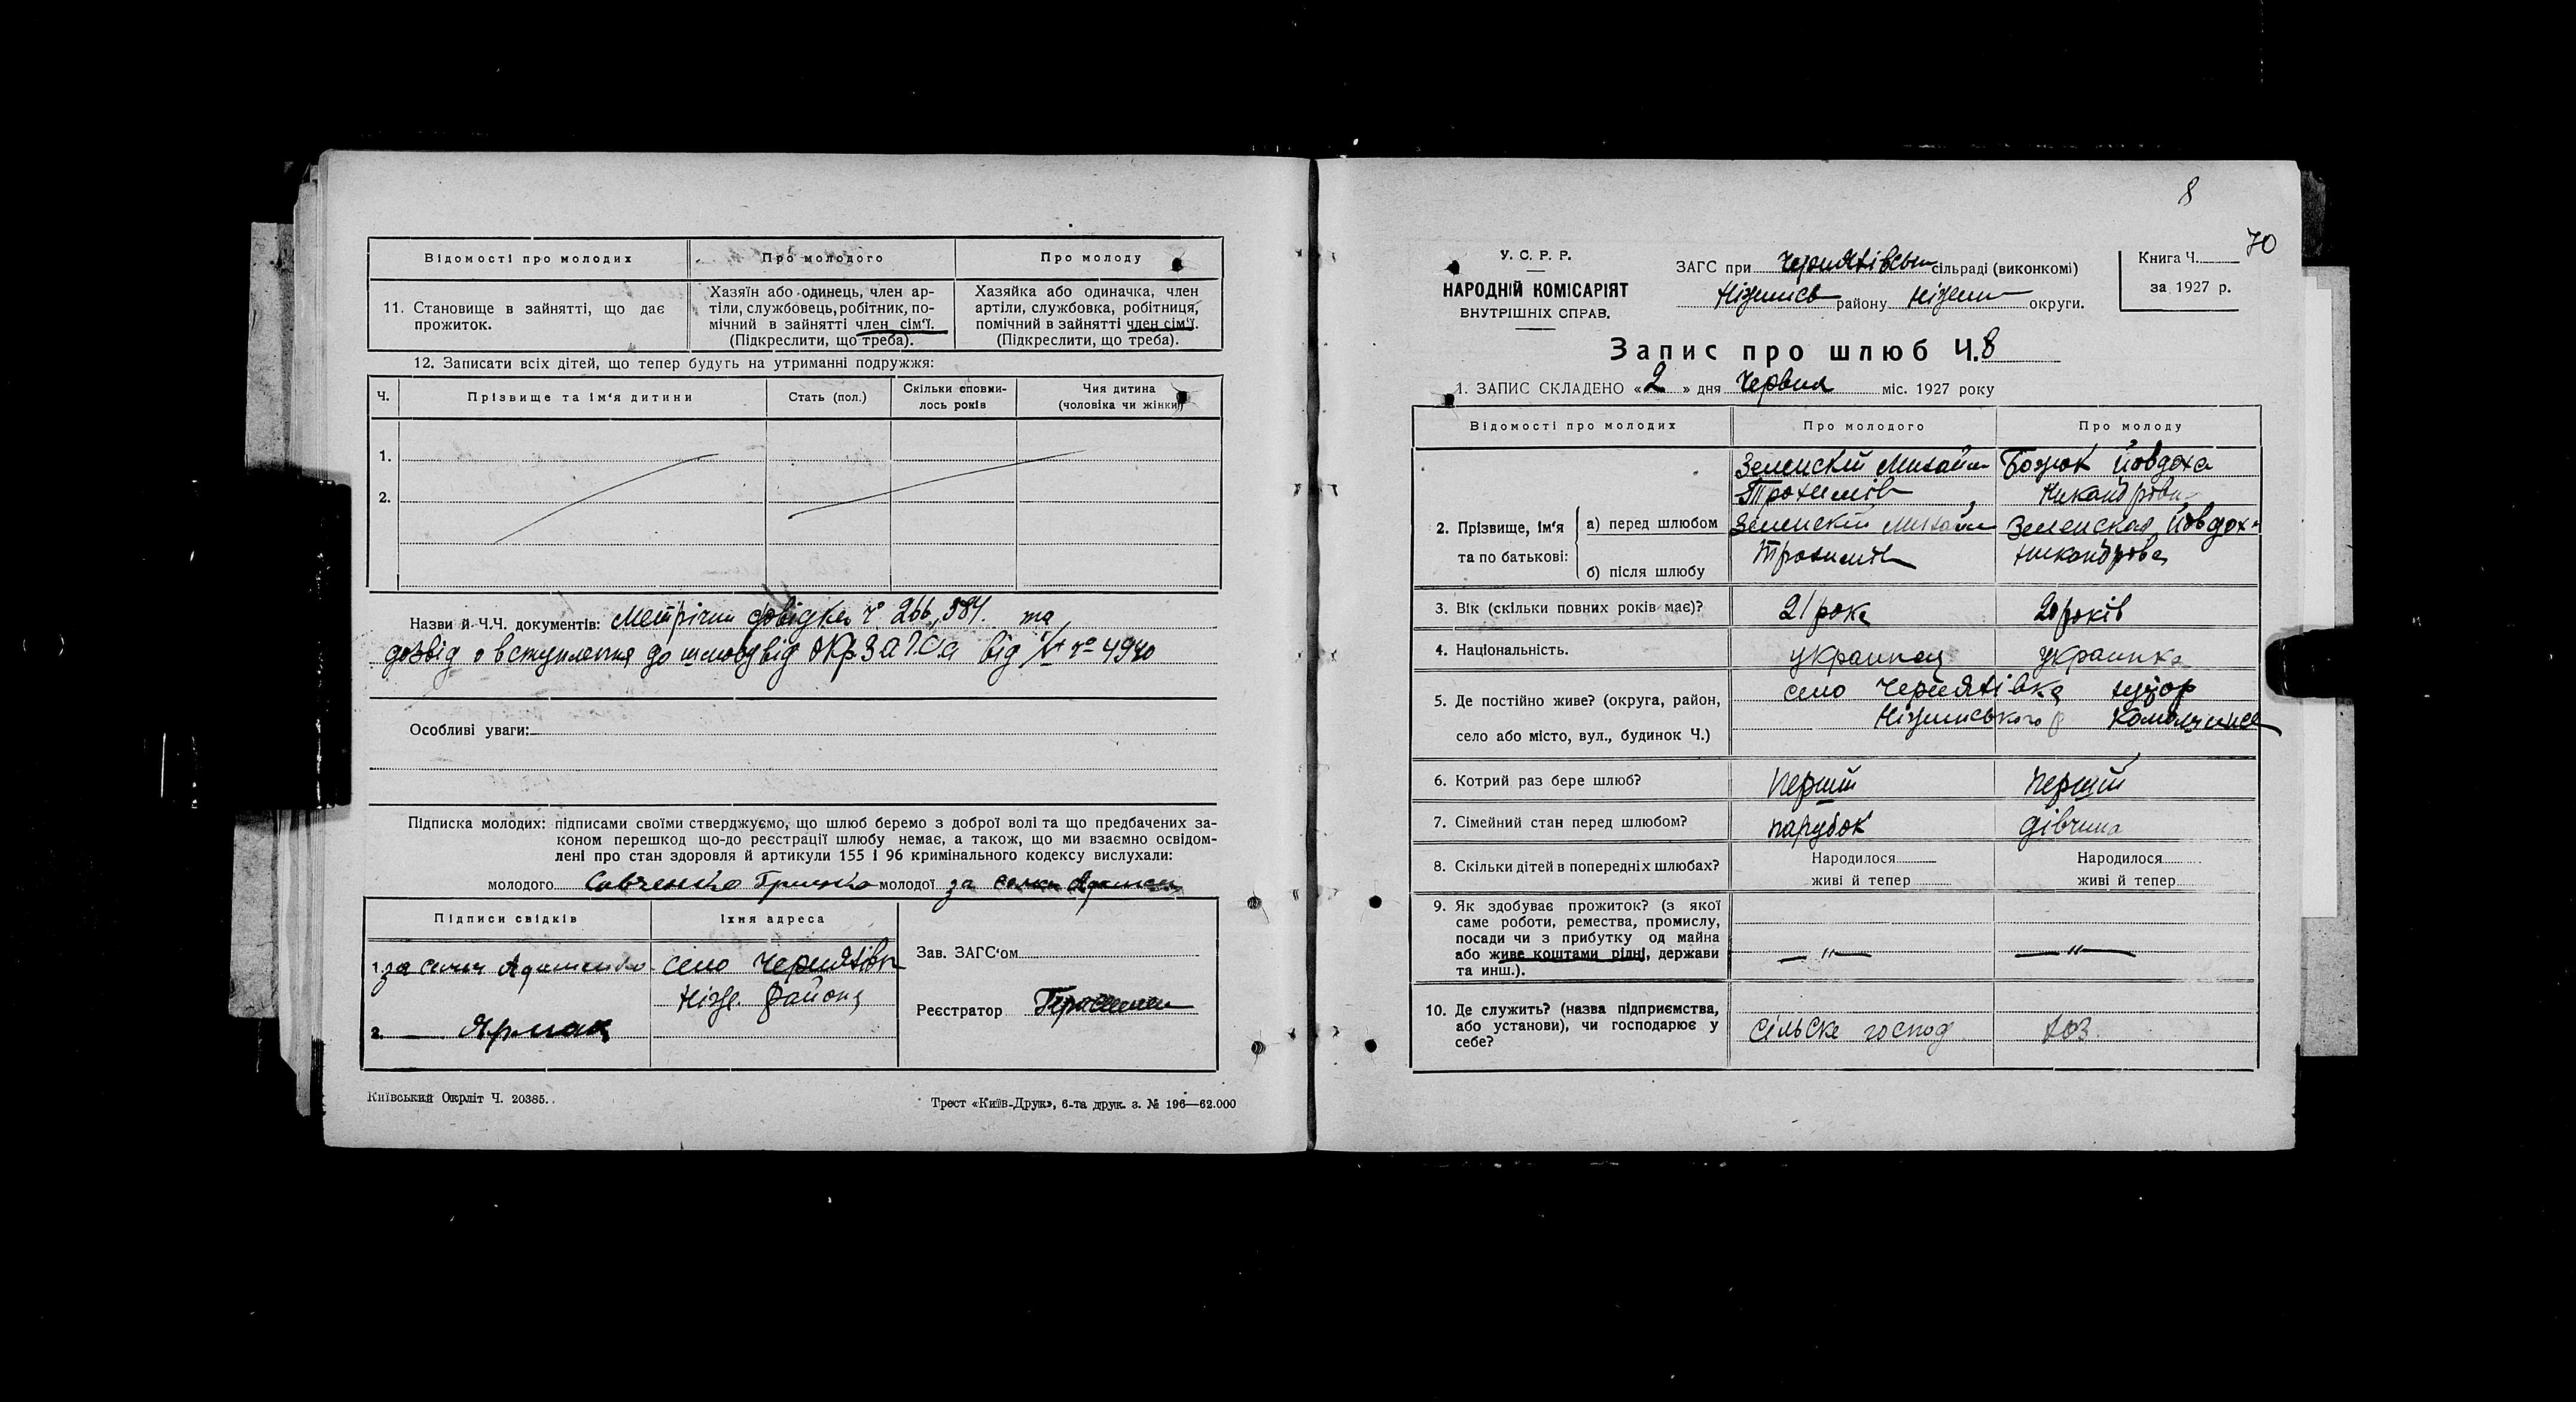 Відомості про молодих Про молодого Про молоду
11. Становище в зайнятті, що дає прожиток.
Хазяїн або одинець, член ар-
тіли, службовець, робітник, по-
мічний в зайнятті член сім'ї.
(Підкреслити, що треба).
Хазяйка або одиначка, член
артіли, службовка, робітниця,
помічний в зайнятті член сім'ї.
(Підкреслити, що треба).
12. Записати всіх дітей, що тепер будуть на утриманні подружжя:
Ч. Прізвище та ім'я дитини Стать (пол.) Скільки сповни-
лось років Чия дитина
(чоловіка чи жінки)
1.
2.
Назви й Ч.Ч. документів: довідка ч. 266, 584. та
дозвід о вступлення до шлюбу від ОкрЗАГСа від 4940
Особливі уваги:
Підписка молодих: підписами своїми стверджуємо, що шлюб беремо з доброї волі та що предбачених за-
коном перешкод що-до реєстрації шлюбу немає, а також, що ми взаємно освідом-
лені про стан здоровля й артикули 155 і 96 кримінального кодексу вислухали:
молодого Савченко молодої за
Підписи свідків Їхня адреса
1. за село
район
2. Ярмак
Зав. ЗАГС'ом
Реєстратор
Київський Окрліт Ч. 20385.
Трест «Київ-Друк», 6-та друк. з. № 196—62.000
8
70
У. С. Р. Р.
НАРОДНІЙ КОМІСАРІЯТ
ВНУТРІШНІХ СПРАВ.
ЗАГС при сільраді (виконкомі)
району округи.
Книга Ч.
за 1927 р.
Запис про шлюб Ч. 8
1. ЗАПИС СКЛАДЕНО «2» дня Червня міс. 1927 року
Відомості про молодих Про молодого Про молоду
2. Прізвище, ім'я
та по батькові:
а) перед шлюбом
б) після шлюбу
Зеленский Михайло
Трохимів
Зеленский Михайло
Трохимів
Божок Йовдоха
Зеленская Йовдоха
Никандрова
3. Вік (скільки повних років має)? 21 рока 20 років
4. Національність. украинец украинка
5. Де постійно живе? (округа, район,
село або місто, вул., будинок Ч.)
село Чернятівка хутор
Ніжинського р
6. Котрий раз бере шлюб? перший перший
7. Сімейний стан перед шлюбом? парубок дівчина
8. Скільки дітей в попередніх шлюбах?
Народилося Народилося
живі й тепер живі й тепер
9. Як здобуває прожиток? (з якої
саме роботи, ремества, промислу,
посади чи з прибутку од майна
або живе коштами рідні, держави
та инш.).
— " — — " —
10. Де служить? (назва підприємства,
або установи), чи господарює у
себе?
Сільське господ